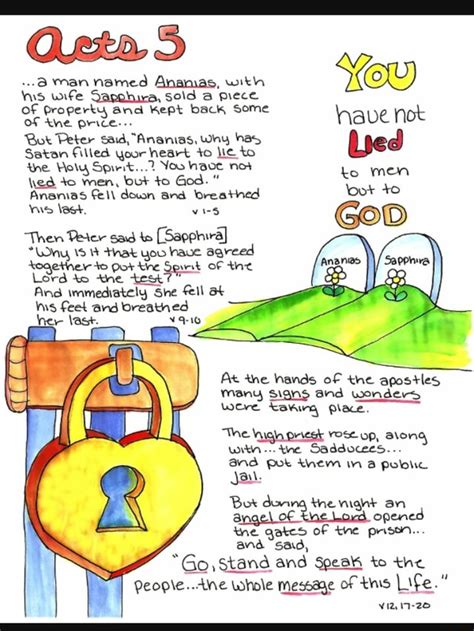 Acts 5
...a man named Ananias, with
his wife Sapphira, sold a piece
of property and kept back some
of the price...
But Peter said, "Ananias, why has
Satan filled your heart to lie to
the Holy Spirit...? You have not
lied to men, but to God."
Ananias fell down and breathed
his last.
v 1-5
You
have not
Lied
to men
but to
GOD
Then Peter said to [Sapphira]
"Why is it that you have agreed
together to put the Spirit of the
Lord to the test?"
And immediately she fell at
his feet and breathed
her last.
v 9-10
Ananias
Sapphira
At the hands of the apostles
many signs and wonders
were taking place.
The high priest rose up, along
with...the Sadducees...
and put them in a public
jail.
But during the night an
angel of the Lord opened
the gates of the prison...
and said,
"Go, stand and speak to the
people...the whole message of this Life."
v 12, 17-20